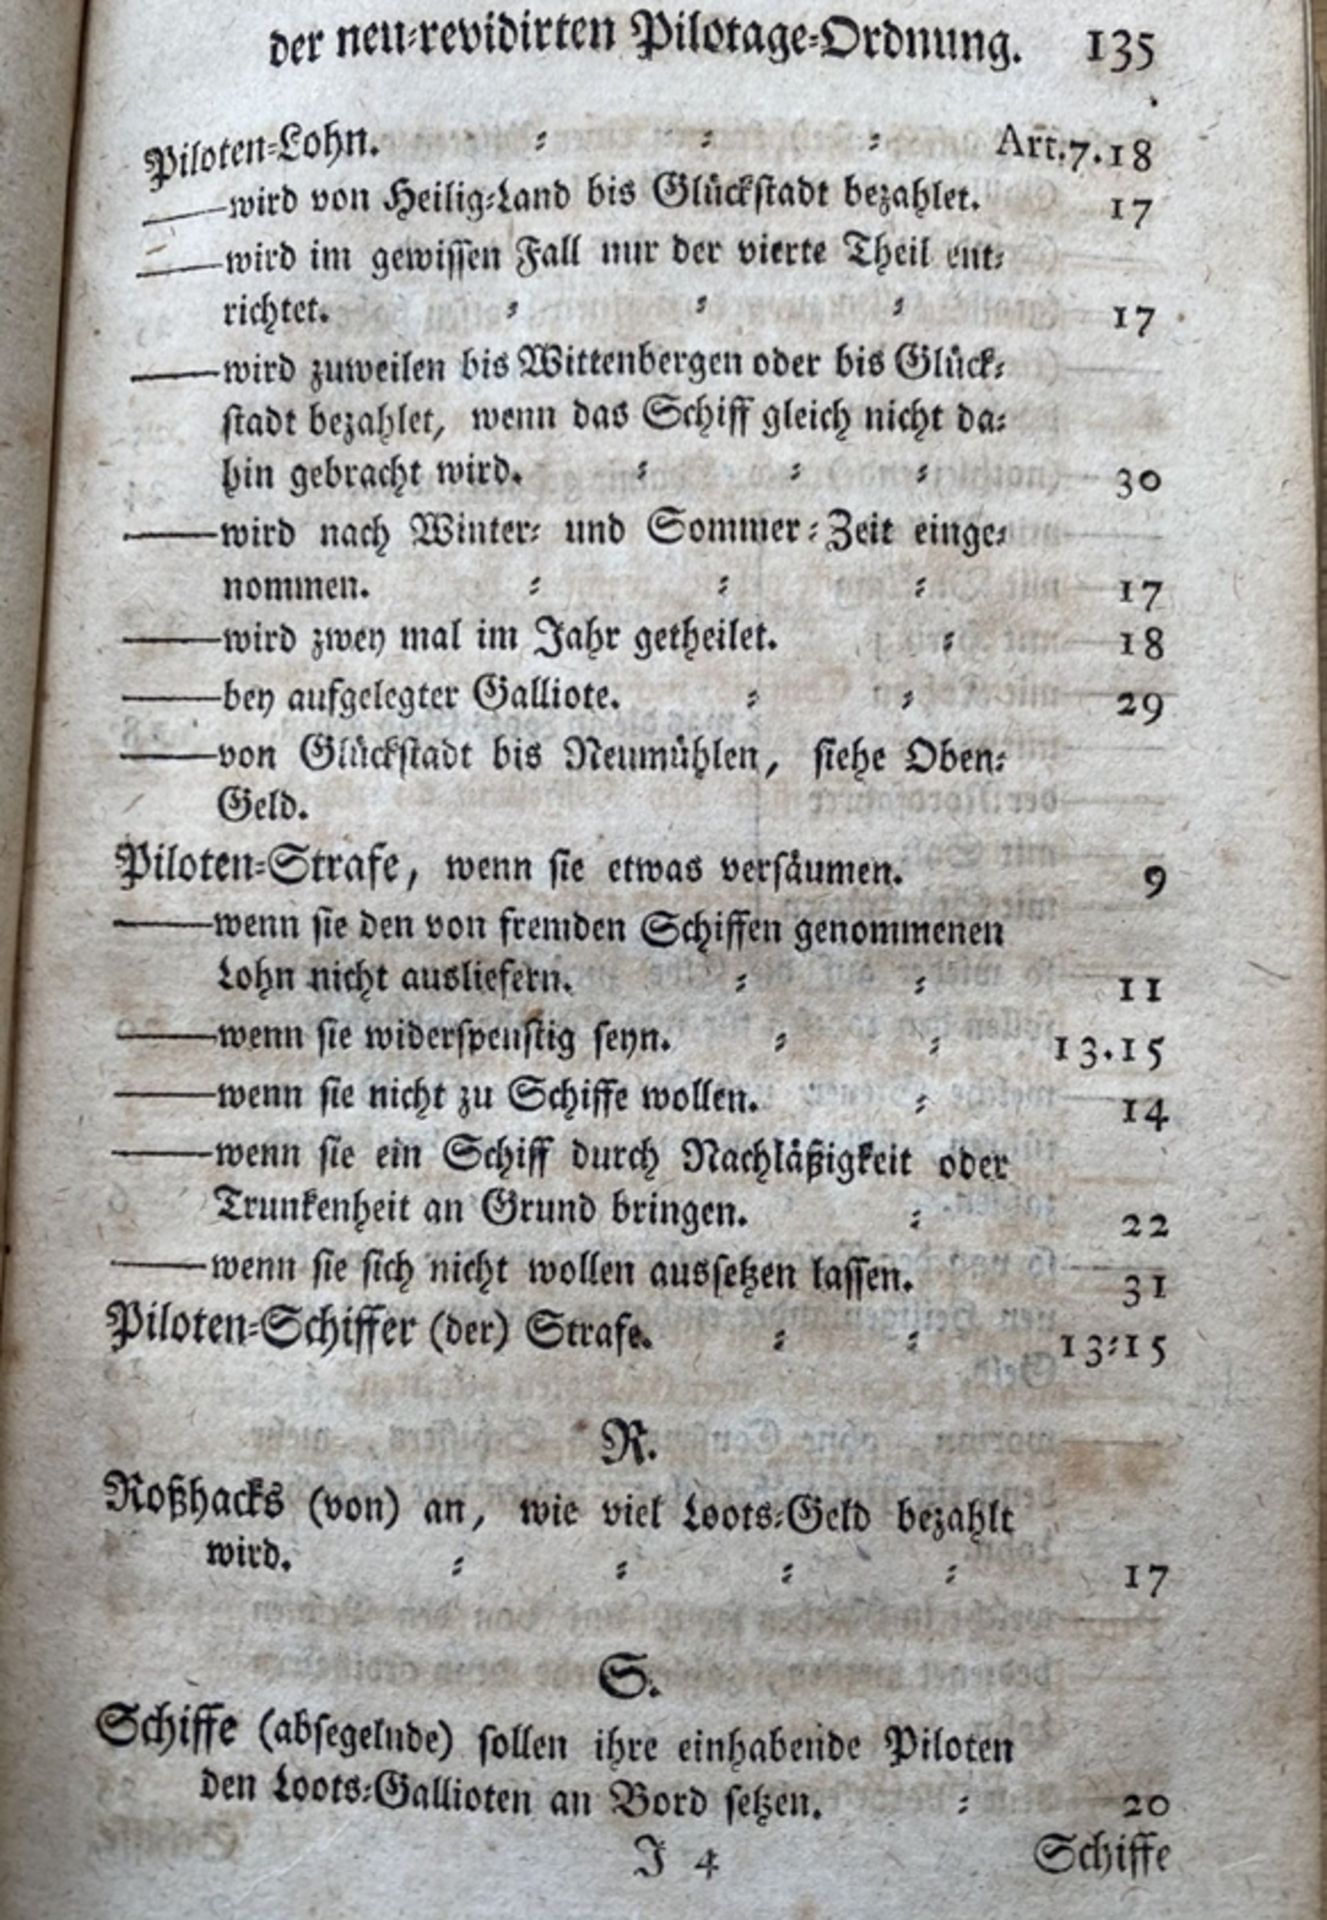 der neu-revidirten Pilotage-Ordnung. 135
Piloten-Lohn. Art. 7. 18
—wird von Heilig-Land bis Glückstadt bezahlet. 17
—wird im gewissen Fall nur der vierte Theil ent-
richtet. 17
—wird zuweilen bis Wittenbergen oder bis Glück-
stadt bezahlet, wenn das Schiff gleich nicht da-
hin gebracht wird. 30
—wird nach Winter- und Sommer-Zeit einge-
nommen. 17
—wird zwey mal im Jahr getheilet. 18
—bey aufgelegter Galliote. 29
—von Glückstadt bis Neumühlen, siehe Oben-
Geld.
Piloten-Strafe, wenn sie etwas versäumen. 9
—wenn sie den von fremden Schiffen genommenen
Lohn nicht ausliefern. 11
—wenn sie widerspenstig seyn. 13. 15
—wenn sie nicht zu Schiffe wollen. 14
—wenn sie ein Schiff durch Nachläßigkeit oder
Trunkenheit an Grund bringen. 22
—wenn sie sich nicht wollen aussetzen lassen. 31
Piloten-Schiffer (der) Strafe. 13-15
R.
Roßhacks (von) an, wie viel Loots-Geld bezahlt
wird. 17
S.
Schiffe (absegelnde) sollen ihre einhabende Piloten
den Loots-Gallioten an Bord setzen. 20
J 4 Schiffe